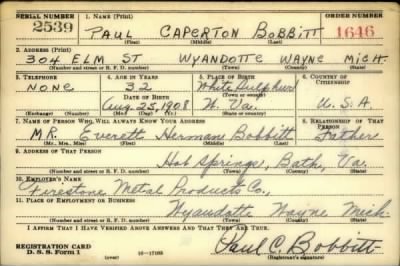 SERIAL NUMBER 1. NAME (Print) ORDER NUMBER
2539 PAUL CAPERTON BOBBITT 1646
(First) (Middle) (Last)
2. ADDRESS (Print)
304 ELM ST WYANDOTTE WAYNE MICH.
(Number and street or R. F. D. number) (Town) (County) (State)
3. TELEPHONE 4. AGE IN YEARS 5. PLACE OF BIRTH 6. COUNTRY OF CITIZENSHIP
NONE 32 White Sulphur
DATE OF BIRTH (Town or county)
Aug. 25, 1908 W. Va. U.S.A.
(Exchange) (Number) (Mo.) (Day) (Yr.) (State or country)
7. NAME OF PERSON WHO WILL ALWAYS KNOW YOUR ADDRESS 8. RELATIONSHIP OF THAT PERSON
MR. Everett Herman Bobbitt Father
(Mr., Mrs., Miss) (First) (Middle) (Last)
9. ADDRESS OF THAT PERSON
Hot Springs, Bath, Va.
(Number and street or R. F. D. number) (Town) (County) (State)
10. EMPLOYER'S NAME
Firestone Metal Products Co.,
11. PLACE OF EMPLOYMENT OR BUSINESS
Wyandotte Wayne Mich.
(Number and street or R. F. D. number) (Town) (County) (State)
I AFFIRM THAT I HAVE VERIFIED ABOVE ANSWERS AND THAT THEY ARE TRUE.
REGISTRATION CARD Paul C. Bobbitt
D. S. S. Form 1 (Registrant's signature)